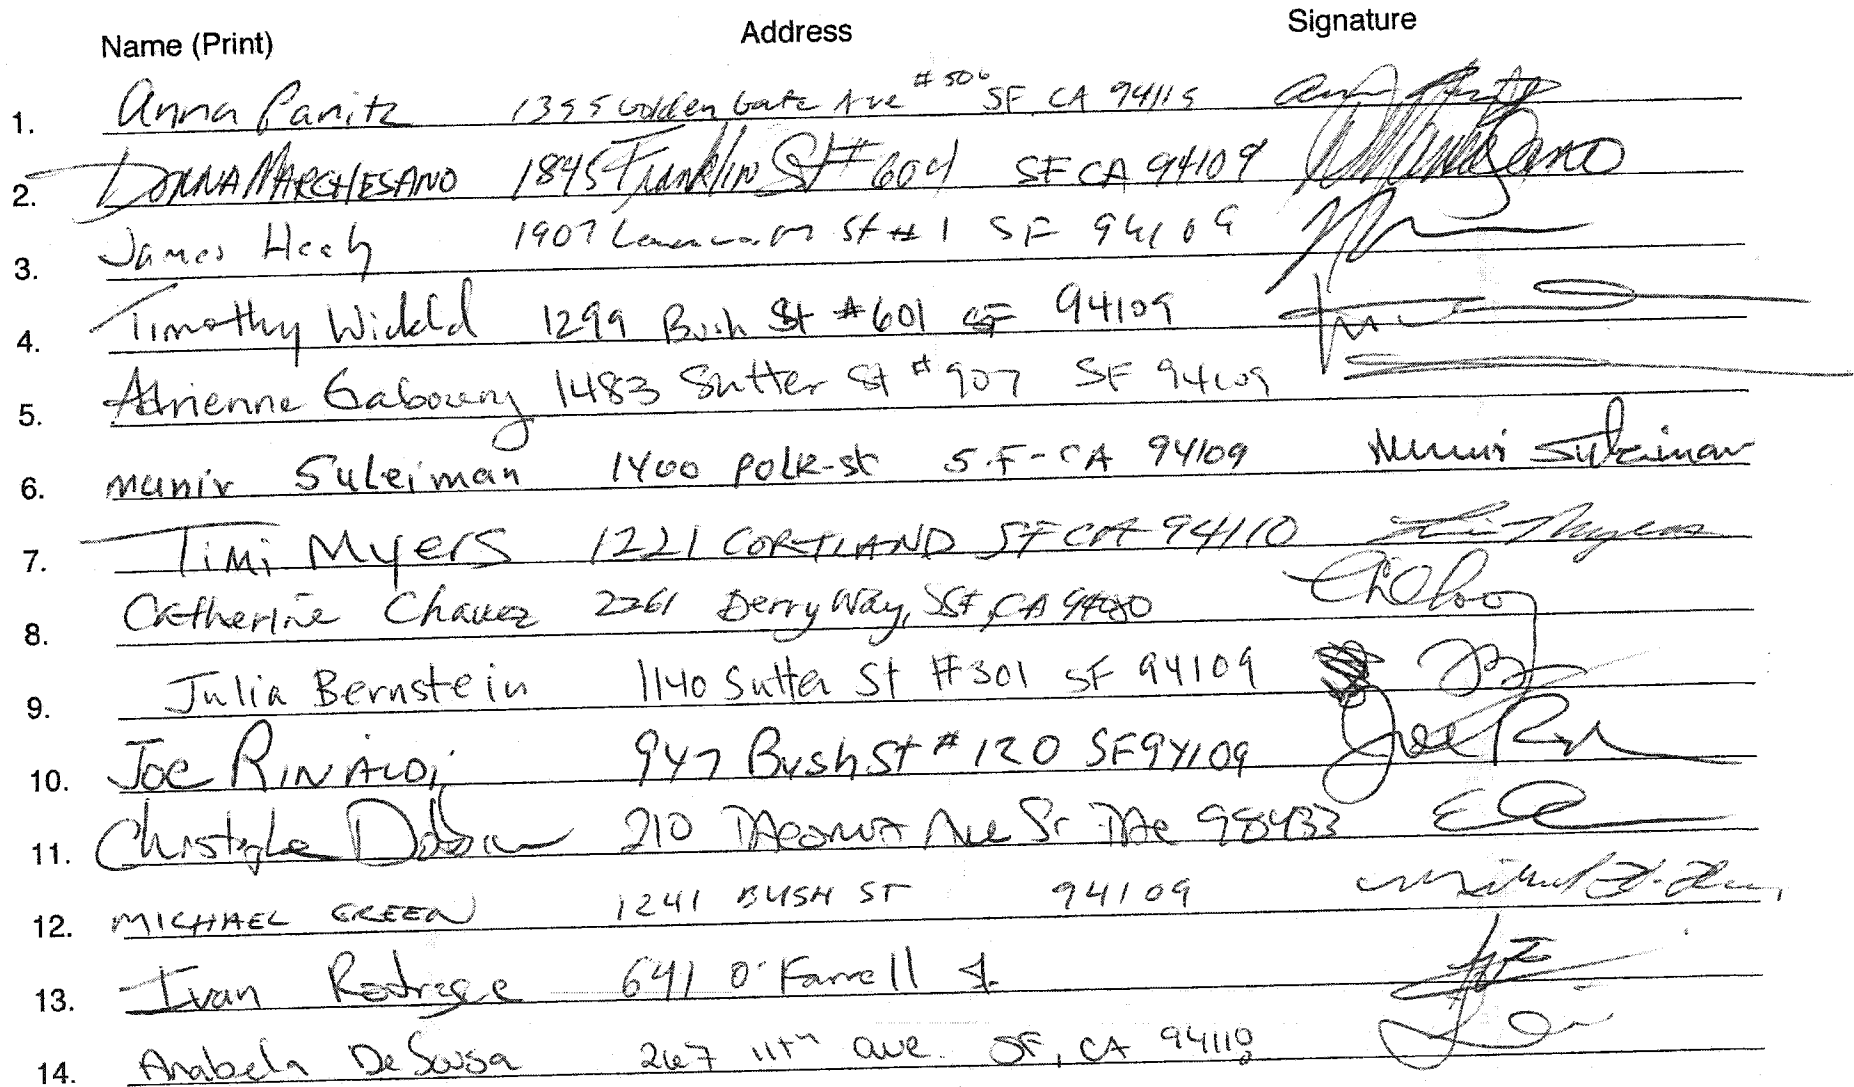 Name (Print) Address Signature
1. Anna Panitz 1355 Golden Gate Ave #506 SF, CA 94115
2. DONNA MARCHESANO 1845 Franklin St # 604 SF CA 94109
3. James 1907 St # 1 SF 94109
4. Timothy 1299 Bush St #601 SF 94109
5. Adrienne Gaboury 1483 Sutter St # 907 SF 94109
6. munir Suleiman 1400 POLK-st S.F-CA 94109 Munir Suleiman
7. Timi Myers 1221 CORTLAND SF CA 94110 Timi Myers
8. Catherine Chavez 2261 Derry Way, SSF, CA
9. Julia Bernstein 1140 Sutter St #301 SF 94109
10. JOE RINALDI 947 Bush St # 120 SF 94109 Joe
11. 210 Ave 98433
12. MICHAEL GREEN 1241 BUSH ST 94109
13. Ivan 641 O'Farrell St.
14. Anabela DeSousa 267 11th ave. SF, CA